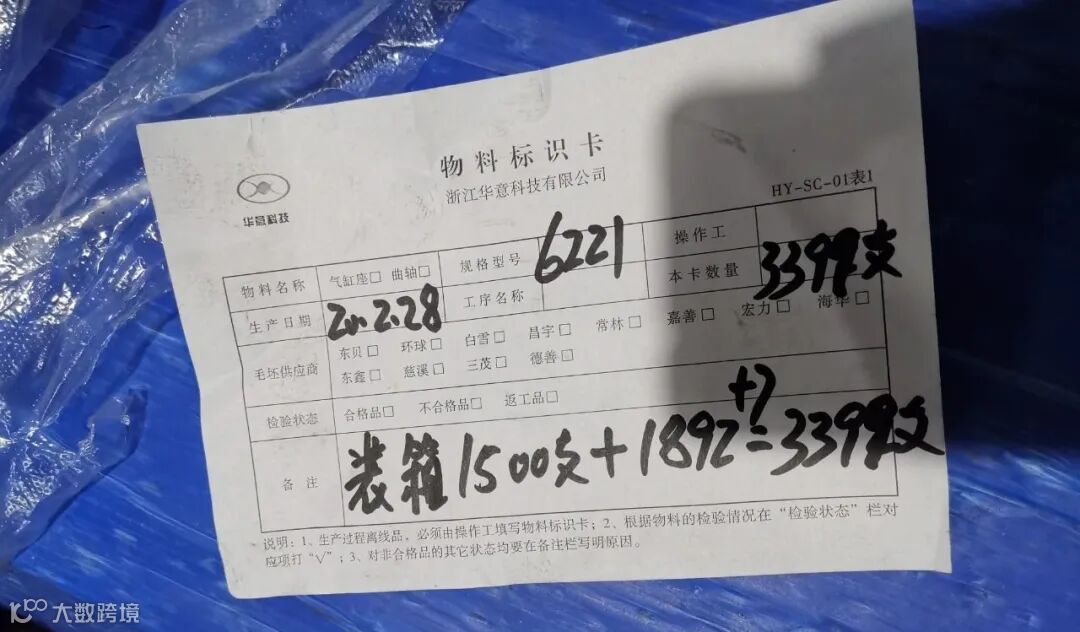 物料标识卡
浙江华意科技有限公司
华意科技
HY-SC-01表1
物料名称 气缸座□ 曲轴□ 规格型号 6221 操作工
生产日期 2.28 工序名称 本卡数量 3399支
毛坯供应商 东贝□ 环球□ 白雪□ 昌宇□ 常林□ 嘉善□ 宏力□ 海华□
东鑫□ 慈溪□ 三茂□ 德善□
检验状态 合格品□ 不合格品□ 返工品□
+7
备注 装箱1500支+1892=3399支
说明：1、生产过程离线品，必须由操作工填写物料标识卡；2、根据物料的检验情况在“检验状态”栏对
应项打“√”；3、对非合格品的其它状态均要在备注栏写明原因。
大数跨境